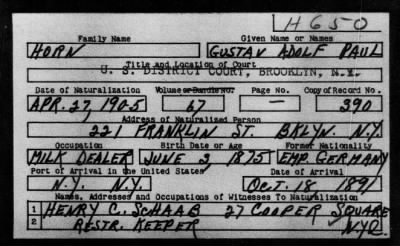 H650
Family Name Given Name or Names
HORN GUSTAV ADOLF PAUL
Title and Location of Court
U. S. DISTRICT COURT, BROOKLYN, N.Y.
Date of Naturalization Volume or Bundle No. Page No. Copy of Record No.
APR. 27, 1905 67 — 390
Address of Naturalized Person
221 FRANKLIN ST. BKLYN. N.Y.
Occupation Birth Date or Age Former Nationality
MILK DEALER JUNE 2, 1875 EMP. GERMANY
Port of Arrival in the United States Date of Arrival
N.Y. N.Y. OCT. 18 1891
Names, Addresses and Occupations of Witnesses To Naturalization
1 HENRY C. SCHAAB 27 COOPER SQUARE
2 RESTR. KEEPER NYC